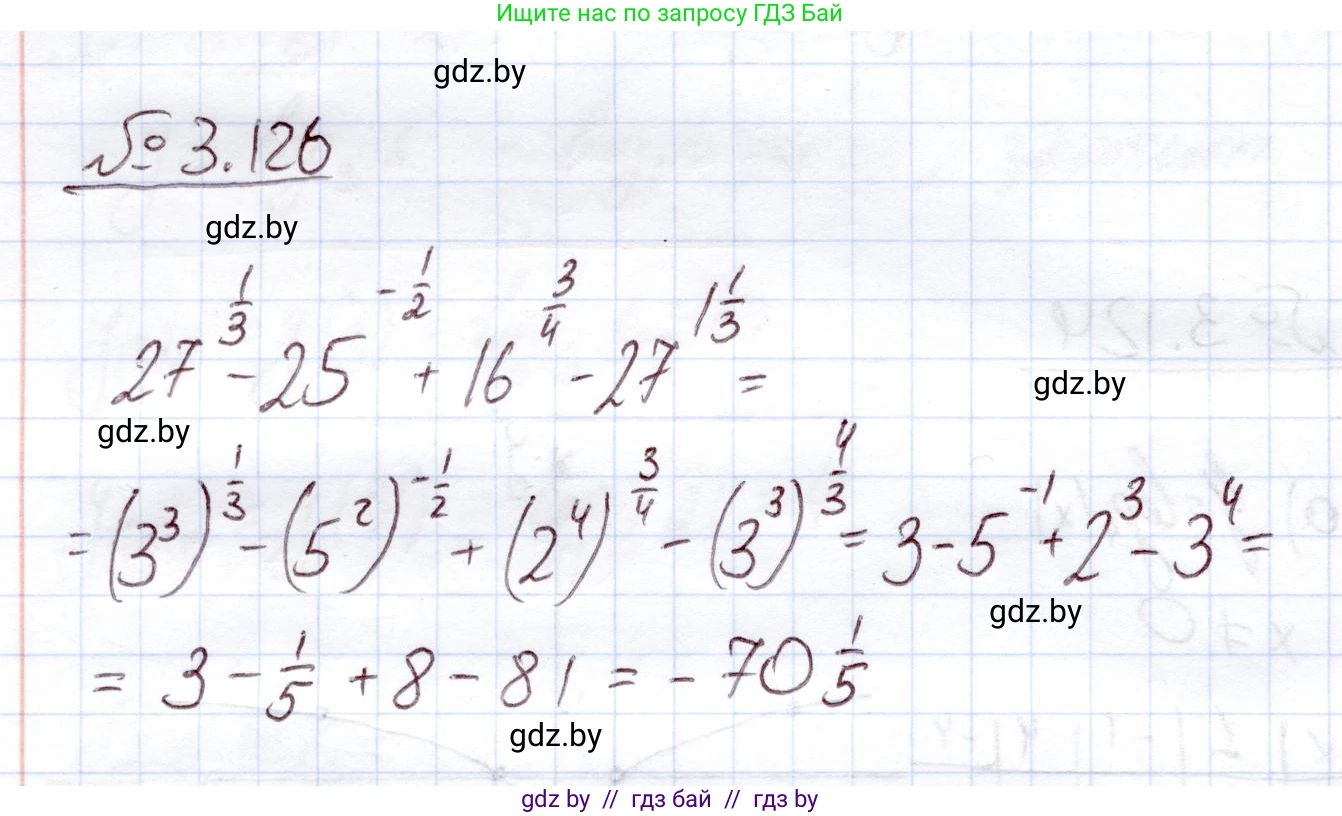 Ищите нас по запросу ГДЗ Бай
gdz.by
№ 3.126
gdz.by
27^{\frac{1}{3}} - 25^{-\frac{1}{2}} + 16^{\frac{3}{4}} - 27^{1\frac{1}{3}} =
gdz.by
gdz.by
= (3^3)^{\frac{1}{3}} - (5^2)^{-\frac{1}{2}} + (2^4)^{\frac{3}{4}} - (3^3)^{\frac{4}{3}} = 3 - 5^{-1} + 2^3 - 3^4 =
gdz.by
= 3 - \frac{1}{5} + 8 - 81 = - 70\frac{1}{5}
gdz.by
gdz by // гдз бай // гдз by